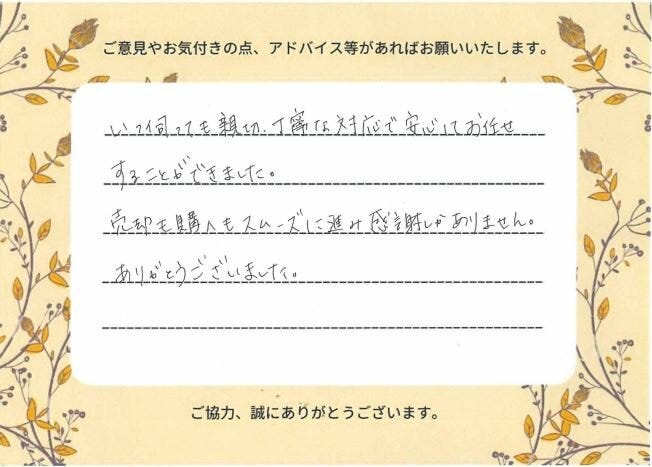 ご意見やお気付きの点、アドバイス等があればお願いいたします。
いつ伺っても親切、丁寧な対応で安心してお任せ
することができました。
売却も購入もスムーズに進み感謝しかありません。
ありがとうございました。
ご協力、誠にありがとうございます。